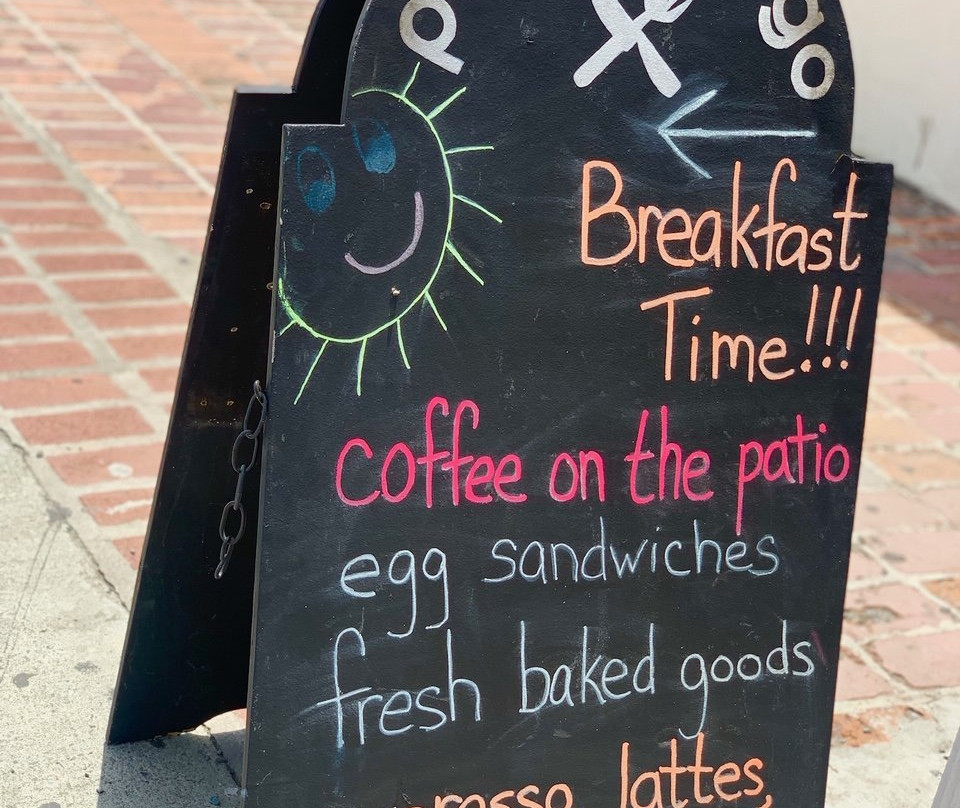 Breakfast
Time!!!
coffee on the patio
egg sandwiches
fresh baked goods
lattes,